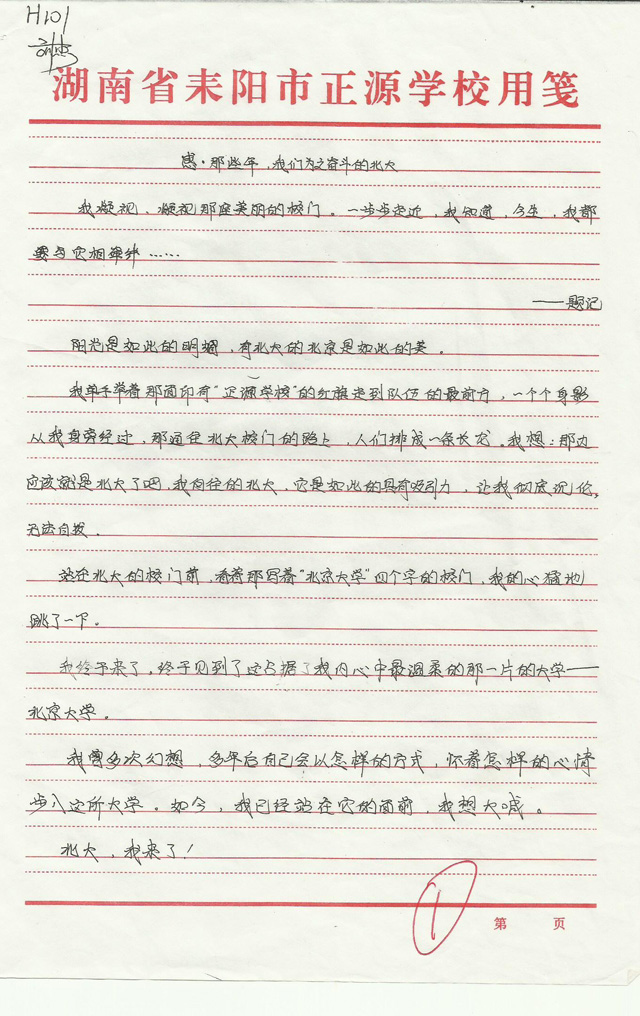 H101
湖南省耒阳市正源学校用笺
惠·那些年，我们为之奋斗的北大
我凝视，凝视那座美丽的校门。一步步走近，我知道，今生，我都
要与它相牵绊……
——题记
阳光是如此的明媚，有北大的北京是如此的美。
我单手举着那面印有“正源学校”的红旗走到队伍的最前方，一个个身影
从我身旁经过，那通往北大校门的路上，人们排成一条长龙。我想：那边
应该就是北大了吧，我向往的北大，它是如此的具有吸引力，让我彻底沉伦，
无法自拔。
站在北大的校门前，看着那写着“北京大学”四个字的校门，我的心猛地
跳了一下。
我终于来了，终于见到了这占据了我内心中最温柔的那一片的大学——
北京大学。
我曾多次幻想，多年后自己会以怎样的方式，怀着怎样的心情
步入这所大学。如今，我已经站在它的面前，我想大喊。
北大，我来了！
1
第 页